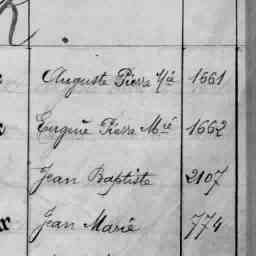 R.
Auguste Pierre Mie 1661
Eugène Pierre Mié 1662
Jean Baptiste 2107
Jean Marie 774